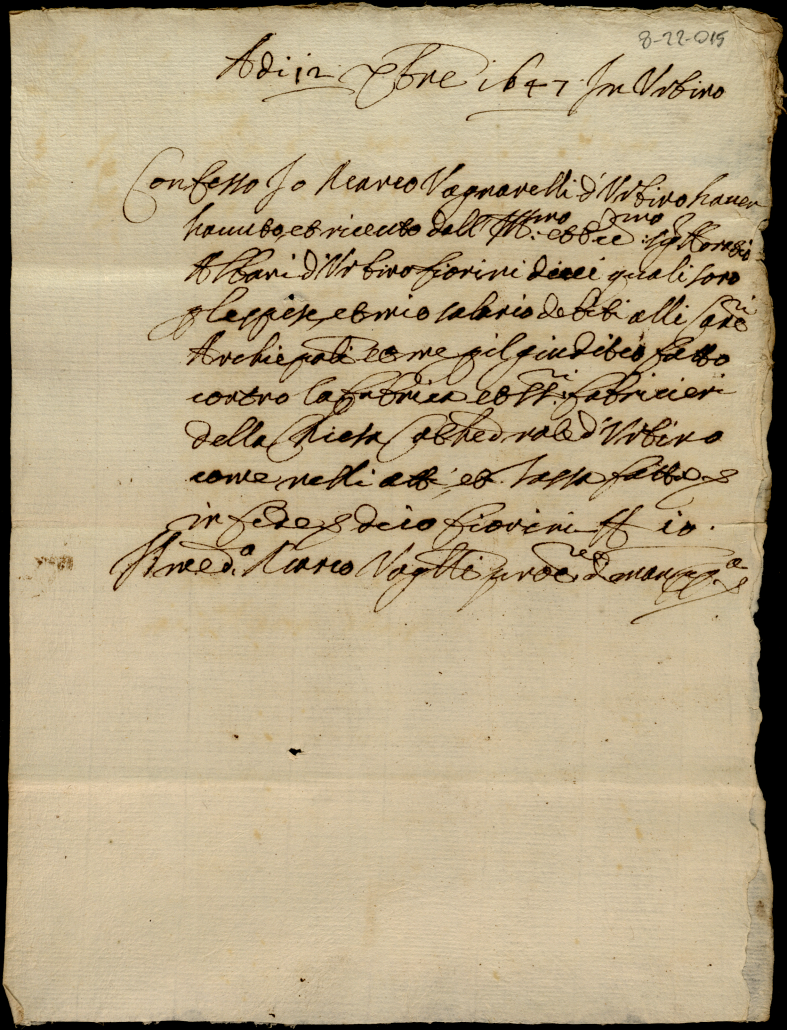 8-22-015
Adi 12 Xbre 1647 In Urbino
Confesso Io Marco Vagnarelli d'Urbino haver
havuto, et riceuto dall' Ill:mo et Ecc:mo Sig.r Horatio
Albani d'Urbino fiorini dieci quali sono
et mio salario debiti alli
et me p il giuditio fatto
contro la fabrica et SS.ri fabricieri
della Chiesa Cathedrale d'Urbino
come nelli atti, et tassa fatta
in fede dico fiorini ff 10.
Marco Vag.lli man pp.a